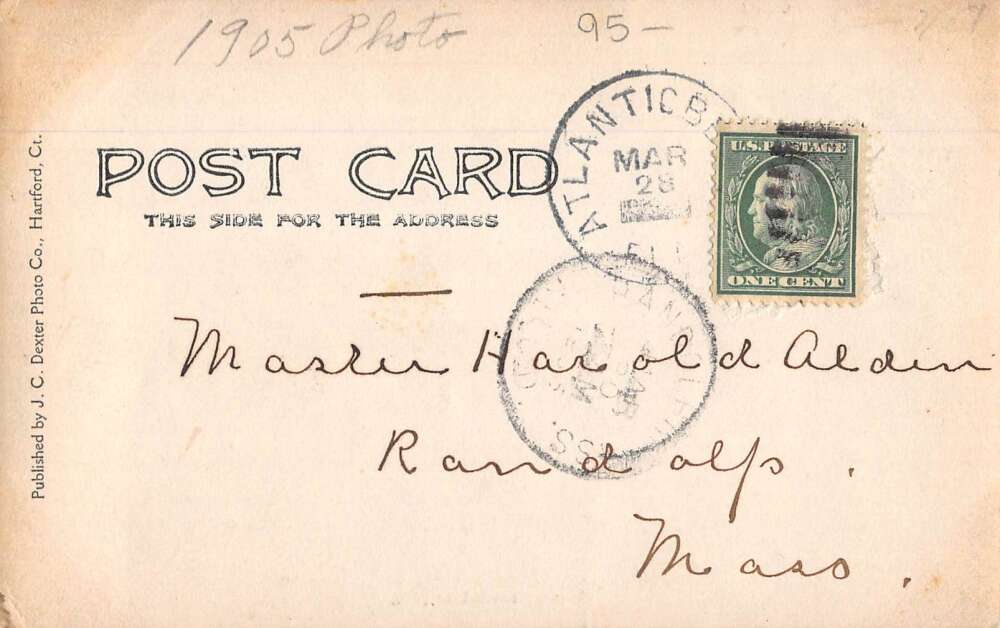 1905 Photo
95-
ATLANTIC
MAR
28
POST CARD
THIS SIDE FOR THE ADDRESS
U.S. POSTAGE
ONE CENT
Published by J. C. Dexter Photo Co., Hartford, Ct.
Master Harold Alden
Randolph.
Mass.